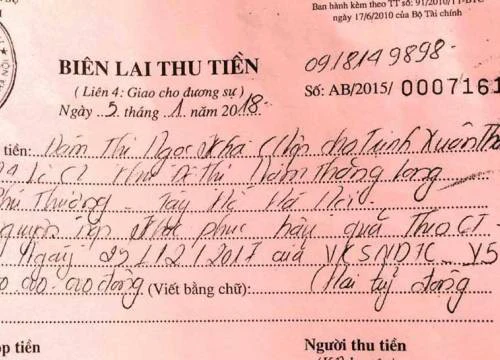 Ban hành kèm theo TT số: 91/2010/TT-BTC
ngày 17/6/2010 của Bộ Tài chính
BIÊN LAI THU TIỀN
0918149898-
( Liên 4: Giao cho đương sự )
Số: AB/2015/ 0007161
Ngày 5 tháng 1 năm 2018-
tiền: Đàm Thị Ngọc Kha (Nộp cho Trịnh Xuân Th
Khu đô thị Nam thăng long
Phú Thượng - Tây Hồ Hà Nội-
nguyện nộp khắc phục hậu quả Theo CT-
Ngày 25/12/2017 của VKSNDTC V5
000.000.000 đồng (Viết bằng chữ): (Hai tỷ đồng
ộp tiền
Người thu tiền